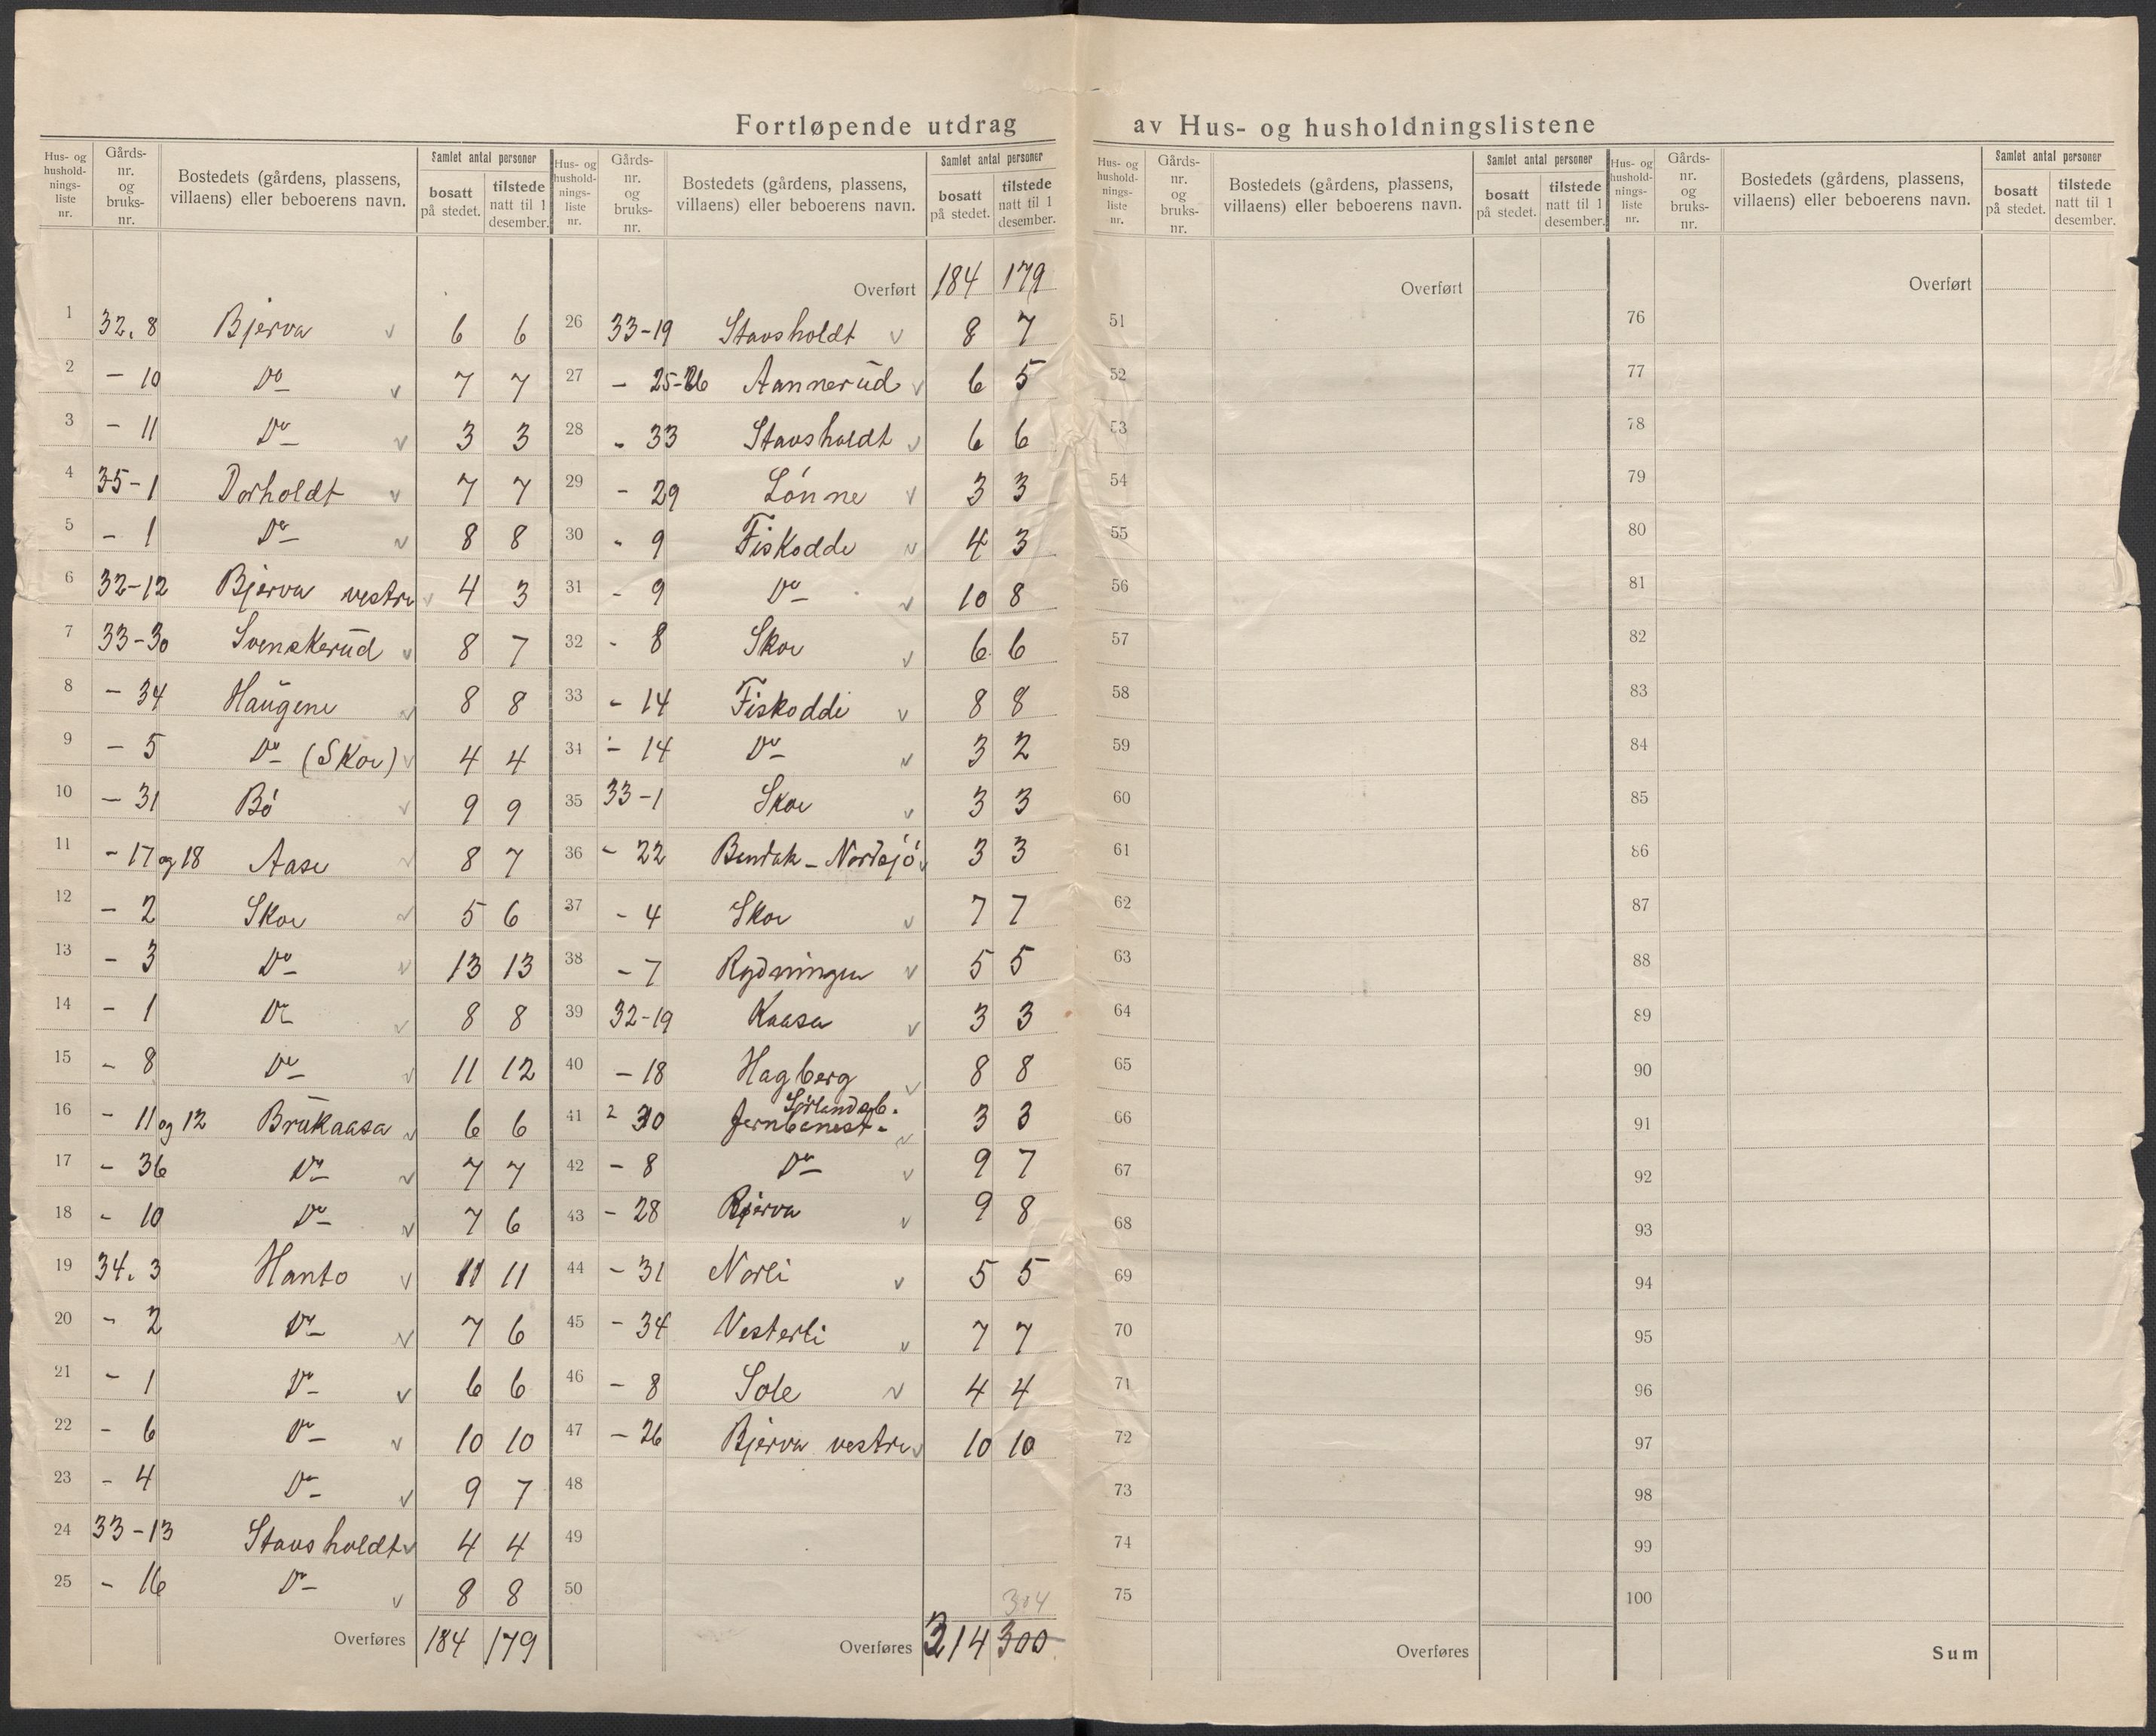 Fortløpende utdrag av Hus- og husholdningslistene
Hus- og hushold-nings-liste nr. Gårds-nr. og bruks-nr. Bostedets (gårdens, plassens, villaens) eller beboerens navn. Samlet antal personer bosatt på stedet. tilstede natt til 1 desember.
1 32. 8 Bjerva v 6 6
2 – 10 Do v 7 7
3 – 11 Do v 3 3
4 35-1 Dorholdt v 7 7
5 – 1 Do v 8 8
6 32-12 Bjerva vestre v 4 3
7 33-30 Svenskerud v 8 7
8 – 34 Haugene v 8 8
9 – 5 Do (Skoe) v 4 4
10 – 31 Bö v 9 9
11 – 17 og 18 Aase v 8 7
12 – 2 Skoe v 5 6
13 – 3 Do v 13 13
14 – 1 Do v 8 8
15 – 8 Do v 11 12
16 – 11 og 12 Brukaasa v 6 6
17 – 36 Do v 7 7
18 – 10 Do v 7 6
19 34. 3 Hanto v 11 11
20 – 2 Do v 7 6
21 – 1 Do v 6 6
22 – 6 Do v 10 10
23 – 4 Do v 9 7
24 33-13 Stavsholdt v 4 4
25 – 16 Do v 8 8
Overføres 184 179
Hus- og hushold-nings-liste nr. Gårds-nr. og bruks-nr. Bostedets (gårdens, plassens, villaens) eller beboerens navn. Samlet antal personer bosatt på stedet. tilstede natt til 1 desember.
Overført 184 179
26 33-19 Stavsholdt v 8 7
27 – 25-26 Aannerud v 6 5
28 – 33 Stavsholdt v 6 6
29 – 29 Lönne v 3 3
30 – 9 Fiskodde v 4 3
31 – 9 Do v 10 8
32 – 8 Skoe v 6 6
33 – 14 Fiskodde v 8 8
34 – 14 Do v 3 2
35 33-1 Skoe v 3 3
36 – 22 Nordsjö v 3 3
37 – 4 Skoe v 7 7
38 – 7 Rydningen v 5 5
39 32-19 Kaasa v 3 3
40 – 18 Hagberg v 8 8
41 – 30 Sörlandsb. Jernbanest. v 3 3
42 – 8 Do v 9 7
43 – 28 Bjerva v 9 8
44 – 31 Norli v 5 5
45 – 34 Vesterli v 7 7
46 – 8 Sole v 4 4
47 – 26 Bjerva vestre v 10 10
48
49
50
304
Overføres 314 300
Hus- og hushold-nings-liste nr. Gårds-nr. og bruks-nr. Bostedets (gårdens, plassens, villaens) eller beboerens navn. Samlet antal personer bosatt på stedet. tilstede natt til 1 desember.
Overført
51
52
53
54
55
56
57
58
59
60
61
62
63
64
65
66
67
68
69
70
71
72
73
74
75
Overføres
Hus- og hushold-nings-liste nr. Gårds-nr. og bruks-nr. Bostedets (gårdens, plassens, villaens) eller beboerens navn. Samlet antal personer bosatt på stedet. tilstede natt til 1 desember.
Overført
76
77
78
79
80
81
82
83
84
85
86
87
88
89
90
91
92
93
94
95
96
97
98
99
100
Sum